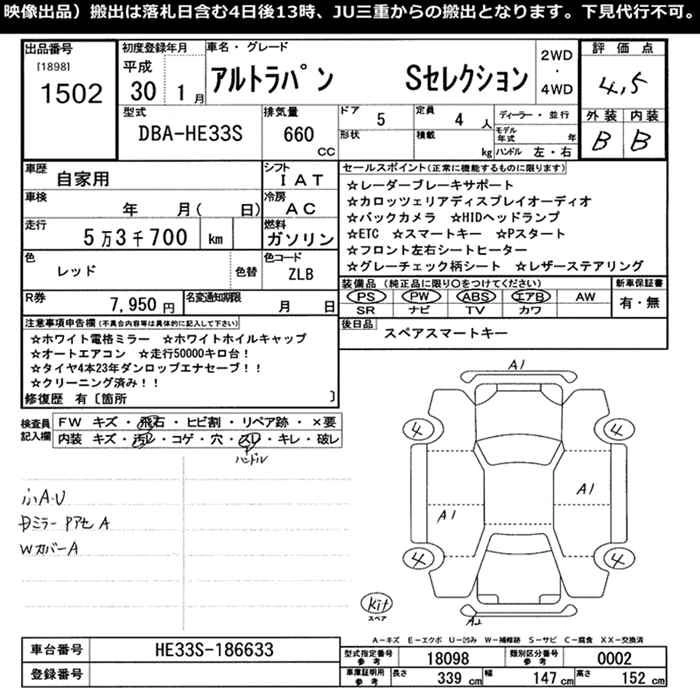 映像出品）搬出は落札日含む4日後13時、JU三重からの搬出となります。下見代行不可。
出品番号
[1898]
1502
初度登録年月
平成
30 1 月
車名・グレード
アルトラパン Sセレクション
2WD
・
4WD
評価点
4,5
外装 内装
B B
型式
DBA-HE33S
排気量
660
CC
ドア 5
定員 4 人
ディーラー・並行
形状
積載 kg
モデル年式 年
ハンドル 左・右
車歴 自家用
シフト IAT
車検 年 月( 日)
冷房 AC
走行 5万3千700 km
燃料 ガソリン
色 レッド 色替
色コード ZLB
R券 7,950円
名変通知期限 月 日
セールスポイント(正常に機能するものに限ります)
☆レーダーブレーキサポート
☆カロッツェリアディスプレイオーディオ
☆バックカメラ ☆HIDヘッドランプ
☆ETC ☆スマートキー ☆Pスタート
☆フロント左右シートヒーター
☆グレーチェック柄シート ☆レザーステアリング
装備品(純正品に限り○をつけてください)
PS PW ABS エアB AW
SR ナビ TV カワ
新車保証書
有・無
後日品 スペアスマートキー
注意事項申告欄(不具合内容等は具体的に記入して下さい)
☆ホワイト電格ミラー ☆ホワイトホイルキャップ
☆オートエアコン ☆走行50000キロ台！
☆タイヤ4本23年ダンロップエナセーブ！！
☆クリーニング済み！！
修復歴 有〔箇所 〕
検査員記入欄
FW キズ・飛石・ヒビ割・リペア跡・×要
内装 キズ・汚レ・コゲ・穴・スレ・キレ・破レ
ハンドル
小A・U
Dミラー PアセA
WカバーA
A1
4 4
A1
A1
4 4
kit
スペア
A2
A－キズ E－エクボ U－凹み W－補修跡 S－サビ C－腐食 XX－交換済
車台番号 HE33S-186633
登録番号
型式指定番号参考 18098
類別区分番号参考 0002
車庫証明用参考 長さ 339 cm 幅 147 cm 高さ 152 cm